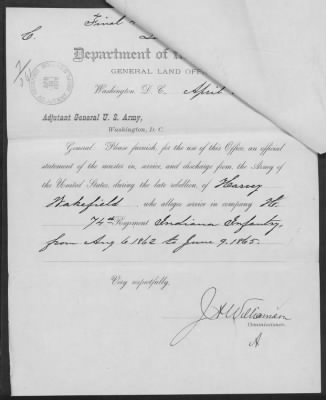 Final
C.
Department of
GENERAL LAND OFF
Washington, D. C., April
Adjutant General U. S. Army,
Washington, D. C.
General: Please furnish, for the use of this Office, an official
statement of the muster in, service, and discharge from, the Army of
the United States, during the late rebellion, of Harvey
Wakefield who alleges service in company H.
74th Regiment Indiana Infantry,
from Aug 6 1862 to June 9. 1865.
Very respectfully,
J A Williamson
Commissioner.
A